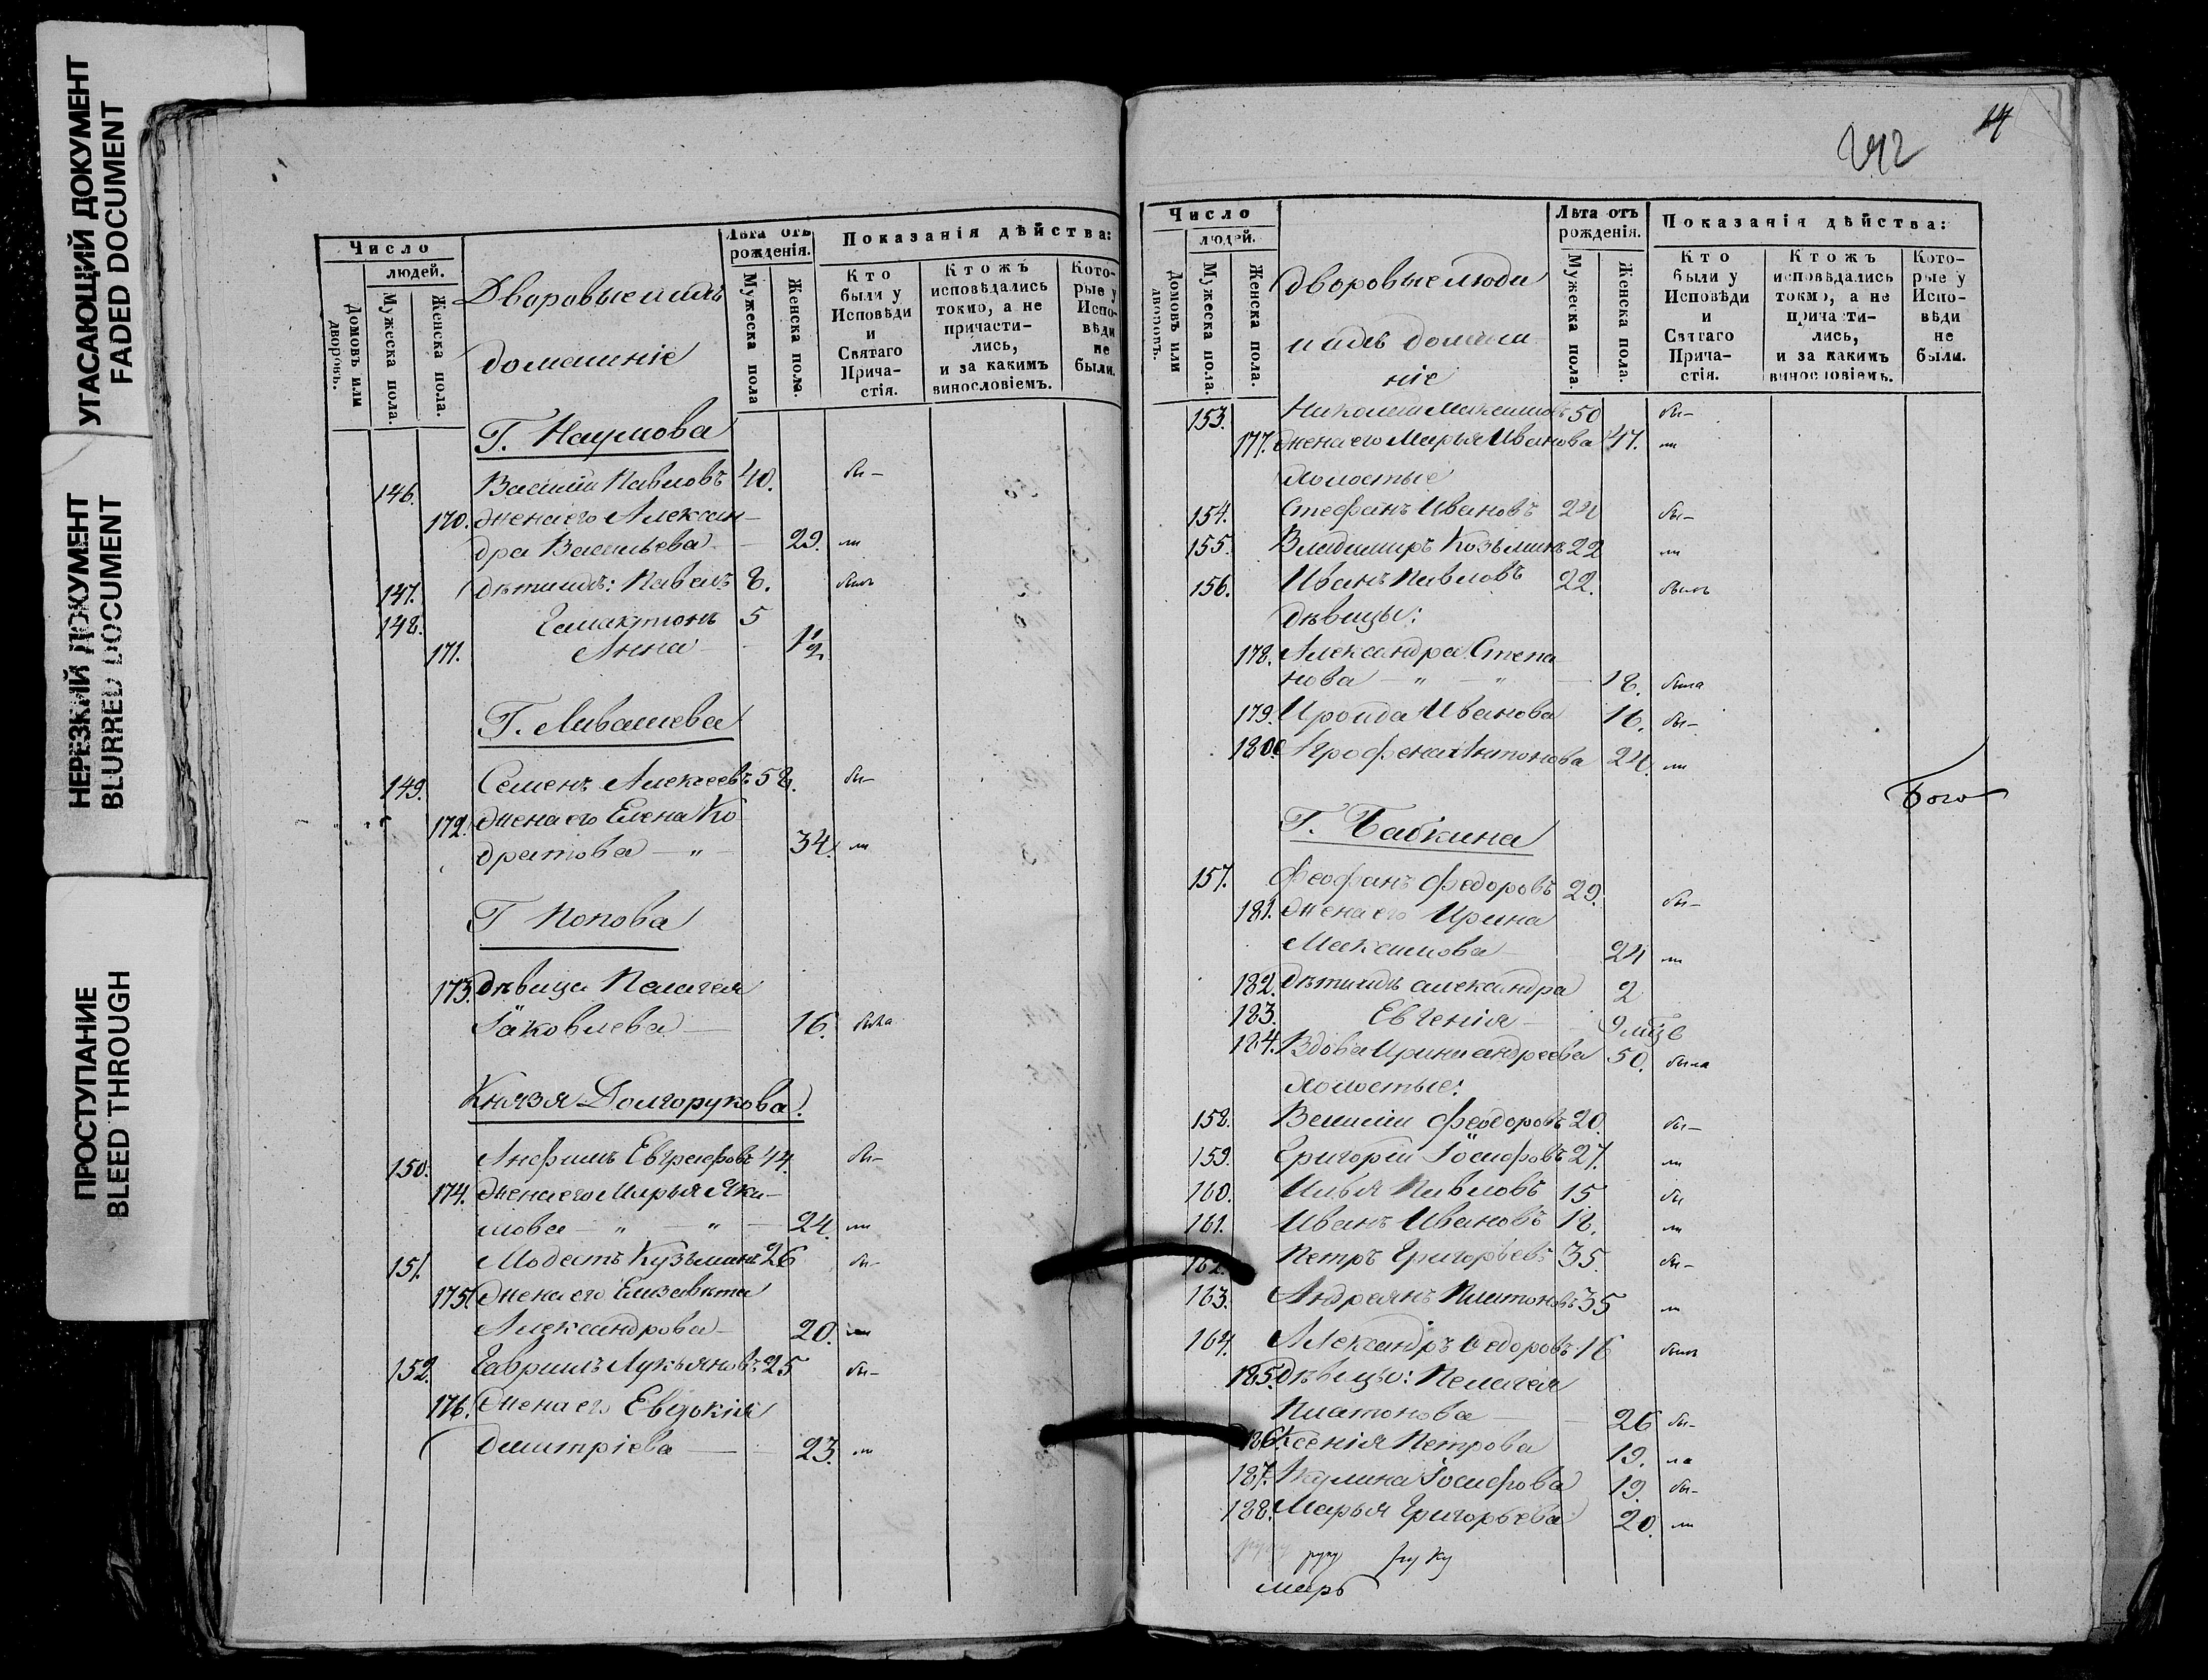 УГАСАЮЩИЙ ДОКУМЕНТ
FADED DOCUMENT
НЕРЕЗКИЙ ДОКУМЕНТ
BLURRED DOCUMENT
ПРОСТУПАНИЕ
BLEED THROUGH
Число
людей.
Домовъ или дворовъ.
Мужеска пола.
Женска пола.
Дворовые и ихъ
домашніе
Лѣта отъ рожденія.
Мужеска пола
Женска пола.
Показанія дѣйства:
Кто были у Исповѣди и Святаго Прича-стія.
Ктожъ исповѣдались токмо, а не причасти-лись, и за какимъ винословіемъ.
Кото-рые у Испо-вѣди не были.
Г. Наумова
146. Василій Павловъ 40. бы–
170. Жена его Алексан–
дра Васильева – 29. ли
147. Дѣти ихъ: Павелъ 8. былъ
148. Галактіонъ 5
171. Анна – 1½
Г. Ливашева
149. Семенъ Алексеевъ 58. бы–
172. Жена его Елена Ко
дратова – " – 34. ли
Г Попова
173. Дѣвица Пелагея
Іаковлева – 16. была
Князя Долгорукова.
150. Анфимъ Евграфовъ 44. бы–
174. Жена его Марья Яки–
мова – " – " – 24. ли
151. Модестъ Кузьминъ 26 бы–
175. Жена его Елизавѣта
Александрова – 20. ли
152. Гавриилъ Лукьяновъ 25 бы–
176. Жена его Евдокія
Дмитріева – 23. ли
14
242
Число
людей.
Домовъ или дворовъ.
Мужеска пола.
Женска пола.
Дворовые люди
и ихъ домаш
ніе
Лѣта отъ рожденія.
Мужеска пола.
Женска пола.
Показанія дѣйства:
Кто были у Исповѣди и Святаго Прича-стія.
Ктожъ исповѣдались токмо, а не причасти-лись, и за какимъ винословіемъ.
Кото-рые у Испо-вѣди не были.
153. Николай Максимовъ 50 бы–
177. Жена его Марья Иванова 47. ли
Холостые
154. Стефанъ Ивановъ 24 бы–
155. Владимиръ Козьминъ 22 ли
156. Иванъ Павловъ 22. былъ
Дѣвицы:
178. Александра Степа
нова – " – " – 18. была
179. Ироида Иванова 16. бы–
180. Агрофена Антонова 24. ли
Бого
Г. Бабкина
157. Феофанъ Федоровъ 29. бы–
181. Жена его Ирина
Максимова – 24 ли
182. Дѣти ихъ александра 2
183. Евгенія – 9 мѣце
184. Вдова Ирина андреева 50. была
Холостые:
158. Василій Феодоровъ 20. бы–
159. Григорій Іосифовъ 27. ли
160. Илья Павловъ 15 бы
161. Иванъ Ивановъ 18. ли
162. Петръ Григорьевъ 35. бы–
163. Андреянъ Платоновъ 35 ли
164. Александръ Федоровъ 16 былъ
185. Дѣвицы: Пелагея
Платонова – 26 бы–
186. Ксенія Петрова 19. ла
187. Акулина Іосифова 19. бы–
188. Марья Григорьева 20. ли
руку
марь